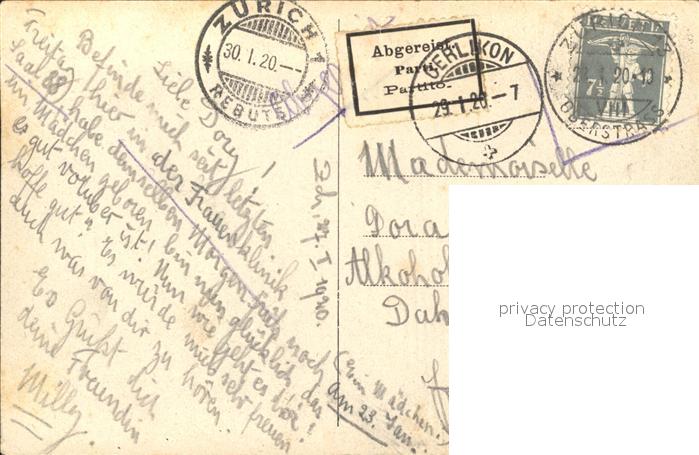 ZÜRICH 1
30. I. 20. -
REBUTS
Abgereist
Parti
Partito
OERLIKON
29. I. 20 - 7
7½
ZÜRICH
20. -10
VIII
OBERSTRASS
Liebe Dory!
Befinde mich seit letzten
Freitag hier in der Frauenklinik
Saal 88, habe denselben Morgen früh noch
ein Mädchen geboren, bin nun glücklich das
es gut vorüber ist! Nun wie geht es dir?
hoffe gut". Es würde mich sehr freuen
auch was von dir zu hören.
Es Grüßt dich
deine Freundin
Milly.
Zch, 27. I 1920.
(ein Mädchen.)
am 23. Jan.
Mademoiselle
Dora
Alkohol
Dah
privacy protection
Datenschutz